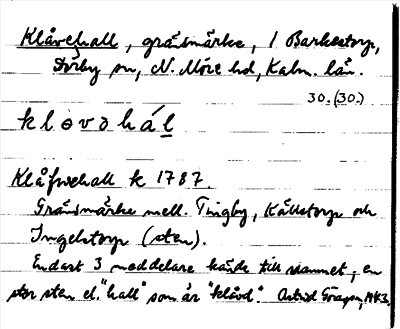 Klåvehall, gränsmärke, i Barkestorp,
Dörby sn, N. Möre hd, Kalm. län.
30. (30.)
kløvəhál
Klåfwehall k 1787.
Gränsmärke mell. Tingby, Källstorp och
Ingelstorp (sten).
Endast 3 meddelare kände till namnet, en
stor sten el. "hall" som är "klåvd". Astrid Göransson, 1943.